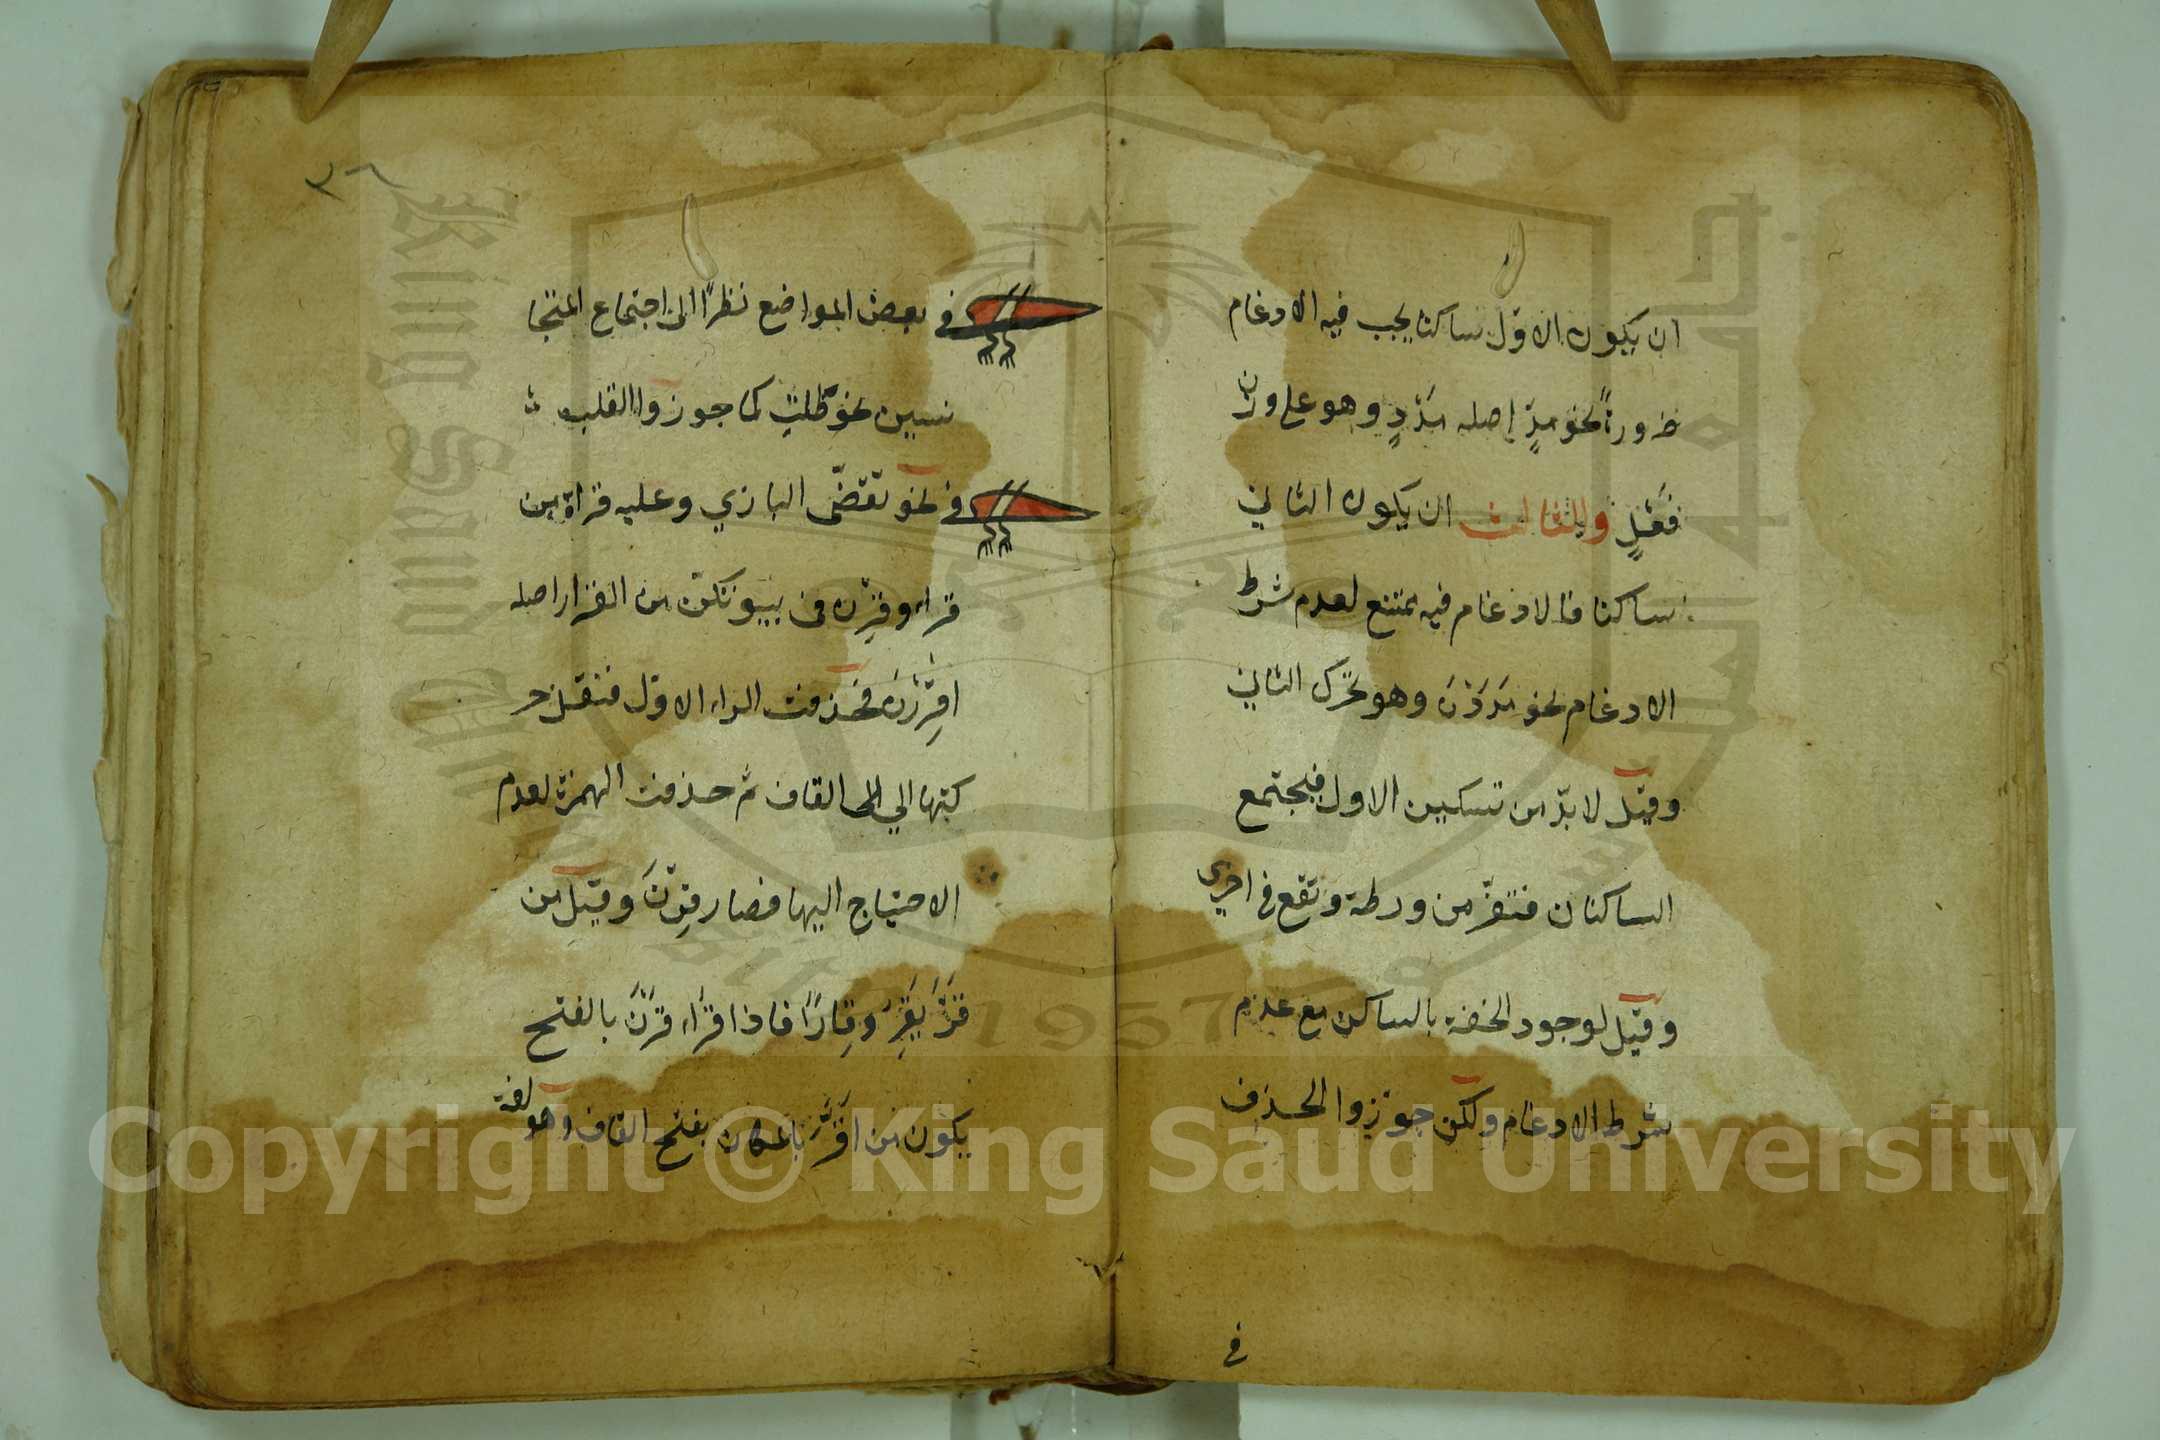 ان يكون الاوّل ساكنا يجب فيه الادغام
ضرورةً نحو مدٍّ اصله مَدْدٍ وهو علي وزن
فَعْلٍ والثالث ان يكون الثاني
ساكنا فالادغام فيه ممتنع لعدم شرط
الادغام نحو مَدَدْنَ وهو تحرّك الثاني
وقيل لا بدّ من تسكين الاول فيجتمع
الساكنان فتفرّ من ورطة وتقع في اخرى
وقيل لوجود الخفة بالساكن مع عدم
شرط الادغام ولكن جوّزوا الحذف
في
٣٦
في بعض المواضع نظرًا الى اجتماع المتجا
نسين نحو ظلت كما جوزوا القلب
في نحو تقضّى البازي وعليه قراة من
قراء وقِرْن في بيوتكنّ من القرار اصله
اقِرَرْنَ فحذفت الراء الاول فنقل حر
كتها الي القاف ثم حذفت الهمزة لعدم
الاحتياج اليها فصار قِرْنَ وقيل من
وَقَرَ يَقِرُ وقارًا فاذا قراء قَرْنَ بالفتح
يكون من اَقَرَّ بالمكان بفتح القاف وهو لغة
Copyright © King Saud University
King Saud University
1957